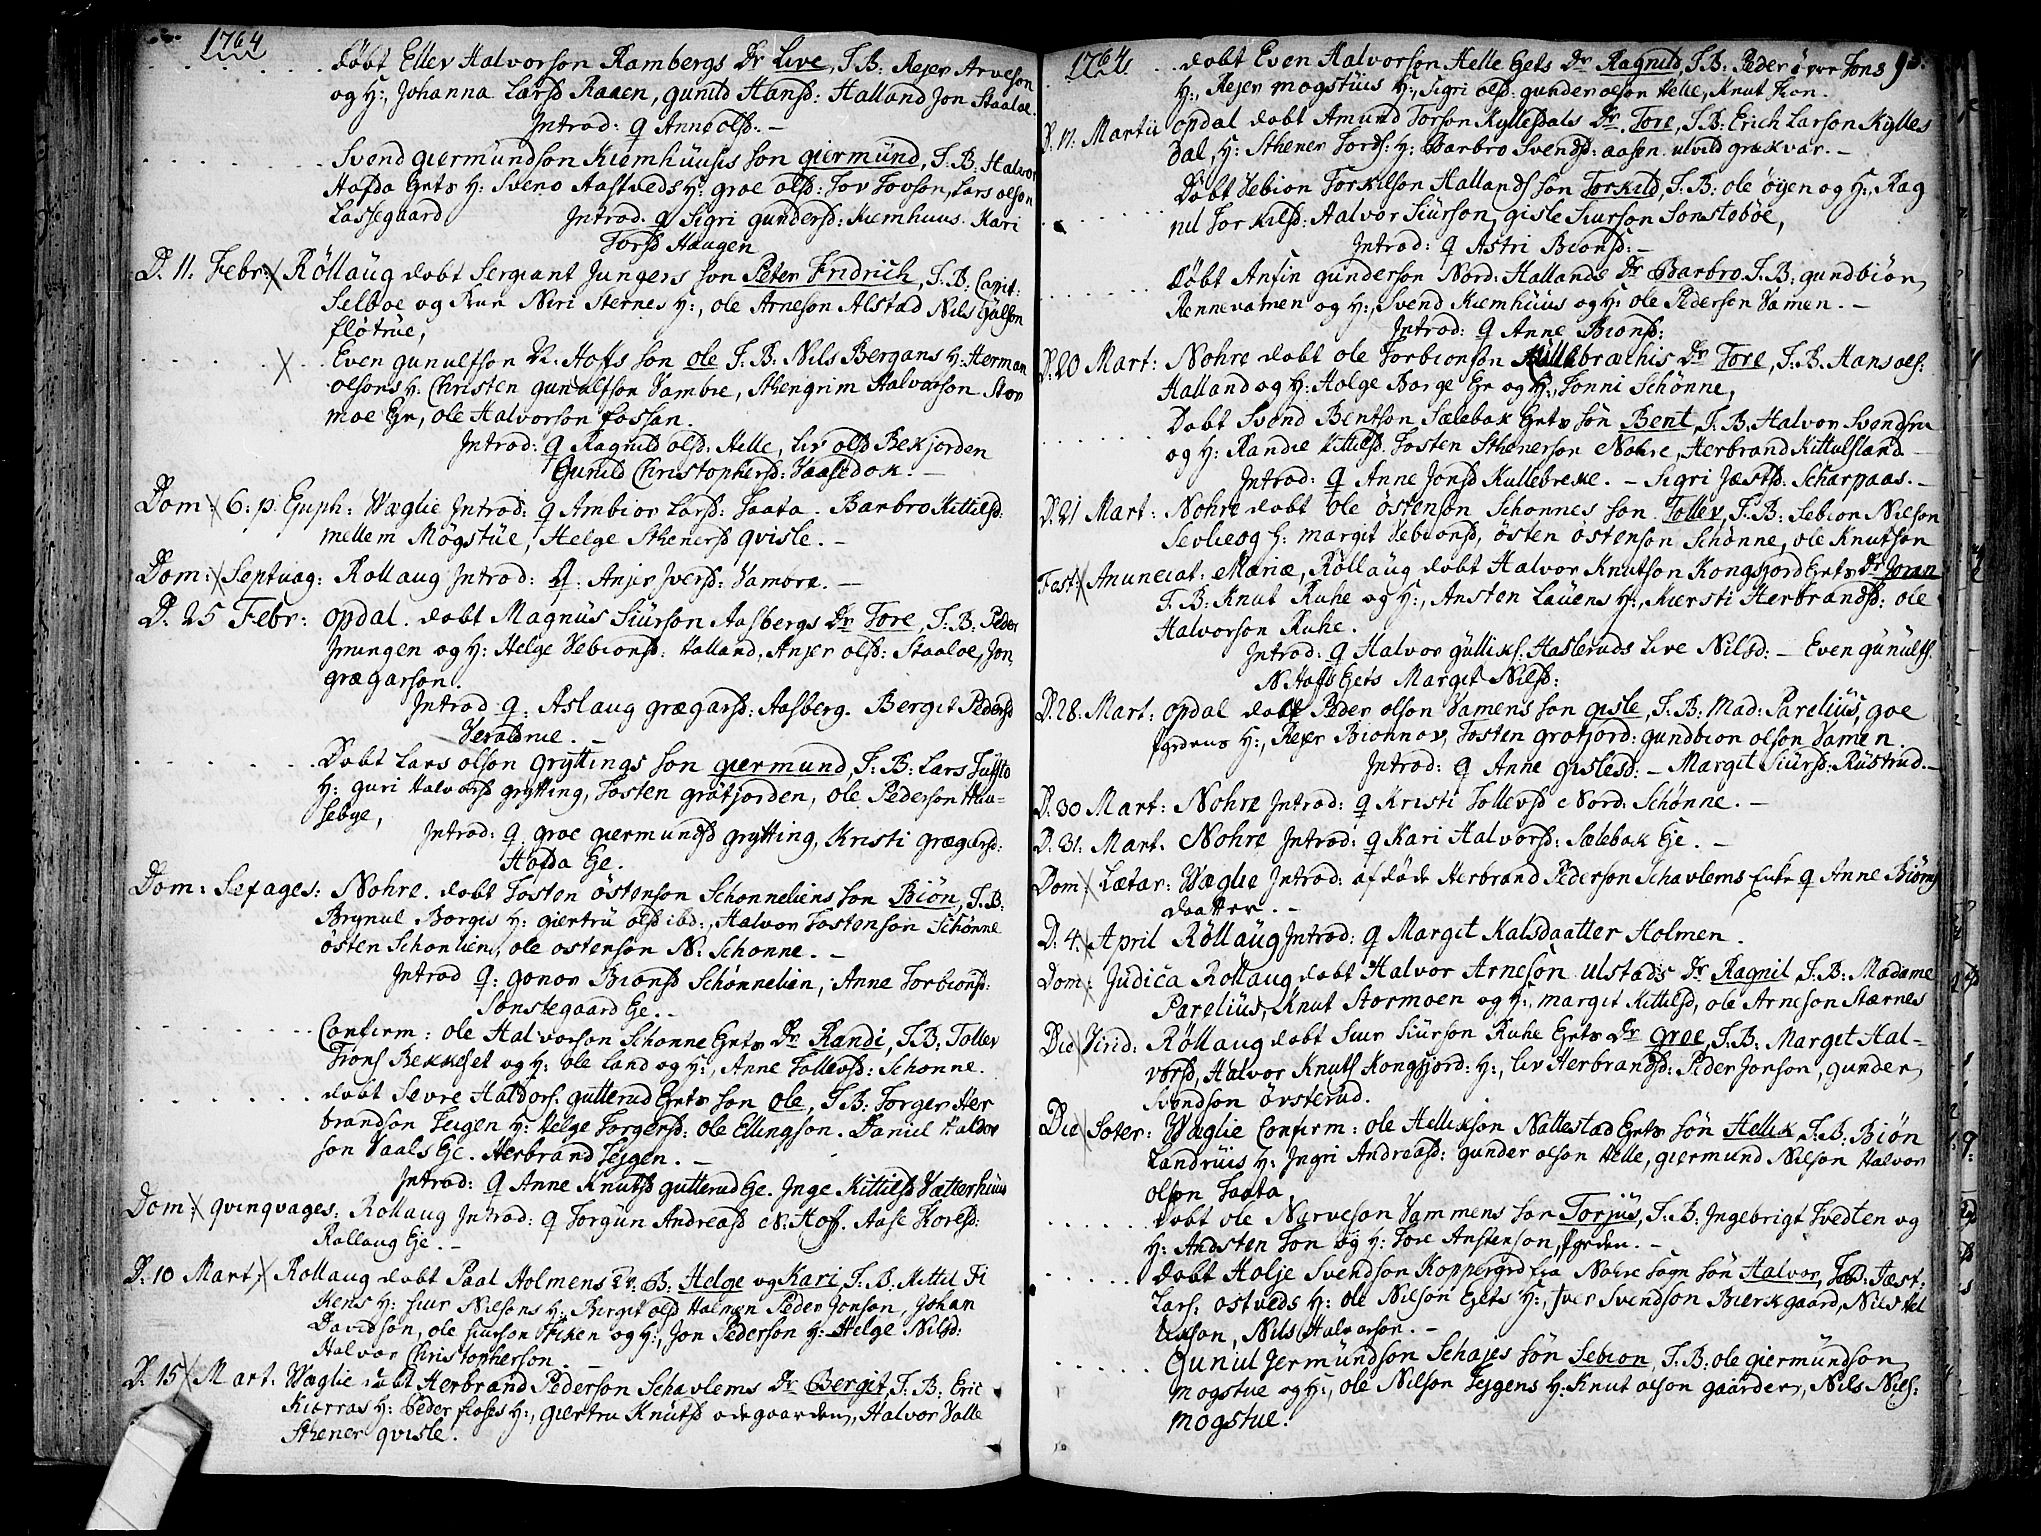 1764
døbt Ellev Halvorson Rambergs Dr Live, T.B: Rejer Arveson
og H:, Johanna Larsd Raaen, gunild Hansd: Halland Jon Staaloe.
Introd: Q Anne olsd: –
Svend giermundson Kiemhuusis son giermund, T.B: Halvor
Hafda Eets H: Sveno Aastveds H: groe olsd: Tov Tovson, Lars olson
Lassegaard Introd: Q Sigri gundersd: Kiemhuus. Kari
Torsd Haugen
D. 11. Febr: Röllaug døbt Sergiant Jungers son Peter Fridrich, T.B: Capit:
Selboe og Frue Niri Sternes H:, ole Arneson Alstad Nils Gulson
fløtrue,
Even gunulfson N. Hoffs son ole T.B. Nils Bergans H: Herman
olsons H: Christen gunulfson Vambre, Sthengrim Halvorson Stor
moe Eje, ole Halvorson fossan.
Introd: Q Ragnild olsd: Helle, Liv olsd Bekjorden
Gunild Christophersd: Vaasedok. –
Dom: 6. p. Epiph: Væglie Introd: Q Ambior Larsd: Taata. Barbro Kittilsd:
mellem Mögstue, Helge Sthenersd qvisle. –
Dom: Septuag: Rollaug Introd: Q: Anjer Iversd: Vambre. –
D. 25 Febr: opdal. døbt Magnus Siurson Aasbergs Dr Tore, T.B: Peder
Imingen og H: Helge Vebionsd: Halland, Anjer olsd: Staaloe, Jon
grægarson.
Introd Q: Aslaug grægarsd: Aasberg. Bergit Pedersd
Veraldrue. –
Døbt Lars olson gryttings son giermund, T.B: Lars Tuffto
H: guri Halvorsd grytting, Tosten gråtjorden, ole Pederson Huu-
sebye,
Introd: Q groe giermundsd grytting, Kristi grægarsd:
Hafda Eje.
Dom: Sexages: Nohre. døbt Tosten östenson Schonneliens son Biön, T.B:
Brynul Borgis H: giertru olsd ibd:, Halvor Tostenson Schönne
östen Schonlien, ole ostenson N: Schonne. –
Introd Q: gonor Bionsd Schönnelien, Anne Torbionsd:
Sønstegaard Eje. –
Confirm: ole Halvorson Schonne Eets Dr Randi, T.B: Tollev
Trons Bekkeset og H: ole Land og H:, Anne Tollevsd: Schonne.
døbt Sevre Haldors: gutterud Eets son ole, T.B: Torger Her
brandson Tejgen H: Helge Torgersd: ole Ellingson. Daniel Haldor
son Vaals Eje. Herbrand Tejgen. –
Introd: Q Anne Knutsd gutterud Eje. Inge Kittilsd Vætterhuus
Dom: qvinqvages: Rollaug Introd: Q Torgun Andreasd N. Hof. Aase Toresd:
Rollaug Eje. –
D. 10 Mart: Rollaug døbt Paal Holmens Tv. B: Helge og Kari, T.B: Kittil Fi
kens H: siur Nilsons H: Bergit olsd Holmen Peder Jonson, Johan
Davidson, ole siurson Fiken og H:, Jon Pederson H: Helge Nilsd:
Halvor Christopherson. –
D. 15 Mart. Væglie døbt Herbrand Pederson Schavlems Dr Bergit, T.B: Eric
Kiørras H: Peder floses H:, giertru Knutsd ødegaarden, Halvor Valle
Sthener qvisle.
1764
93.
døbt Even Halvorson Helle Eets Dr Ragnild, T.B: Peder
H:, Rejer mogstuus H:, Sigri olsd: gunder olson Helle, Knut
D. 11. Martii opdal døbt Amund Torson Kyllesdals Dr. Tore, T.B: Erich Larson Kylles
dal, H: Sthener Tords: H: Barbro Svendsd: aasen. ulvild grækvar. –
Døbt Vebion Torkilson Hallands son Torkild, T.B: ole öyen og H:, Rag
nil Torkilsd: Halvor Siurson, gisle Siurson Sonstebøe,
Introd: Q Astri Bionsd: –
døbt Ansin gunderson Nord: Hallands Dr Barbro T.B: gundbiör
Rennevatnen og H:, Svend Kiemhuus og H: ole Pederson Vamen. –
Introd: Q Anne Bionsd:
D. 20 Mart: Nohre døbt ole Torbionson Kullebræchis Dr Tore, T.B. Hans ols:
Halland og H: Holge Borge Eje og H:, Tonni Schönne,
Døbt Svend Bentson Sælebæk Eets son Bent, T.B. Halvor Svendsrue
og H: Randie Kittilsd, Tosten Sthenerson Nohre, Herbrand Kittulsland –
Introd: Q Anne Jonsd Kullebreke. – Sigri Jæstsd: Scharpaas. –
D. 21 Mart: Nohre døbt ole östenson Schonnes son Tollev, T.B: Sebion Nilson
Sevlie og H: margit Vebionsd, östen östenson Schonne, ole Knutson
Fest: Anunciat: Mariæ, Röllaug døbt Halvor Knutson Kongsjord Eets Dr Joran
T.B: Knut Ruhe og H:, Ansten Lauens H:, Kiersti Herbrandsd: ole
Halvorson Ruhe.
Introd: Q Halvor gulliks: Hasleruds Live Nilsd: – Even gunulfs.
N. Hoffs Eets Margit Nilsd:
D. 28. Mart: opdal døbt Peder olson Vamens son gisle, T.B: Mad: Parelius, goe
H:, Rejer Biohnov, Tosten grotjord: gundbion olson Vamen.
Introd: Q Anne gislesd: – Margit Siursd: Rustrud. –
D. 30 Mart: Nohre Introd: Q Kristi Tollevsd Nord: Schönne. –
D. 31. Mart. Nohre Introd: Q Kari Halvorsd: Sælebæk Eje. –
Dom: Lætar: Væglie Introd: afdøde Herbrand Pederson Schavlems Enke Q Anne Biöns
daatter. –
D. 4. April Röllaug Introd: Q Margit Kalsdaatter Holmen.
Dom: Judica Rollaug døbt Halvor Arneson ulstads Dr Ragnil T.B: Madame
Parelius, Knut Stormoen og H:, margit Kittilsd, ole Arneson Stærnes
Die Virid: Röllaug døbt siur Siurson Ruhe Eets Dr groe, T.B: Margit Hal-
vorsd, Halvor Knuts Kongsjord: H:, Liv Herbrandsd: Peder Jonson, gunder
Svendson övsterud.
Die Soter: Væglie Confirm: ole Hellikson Nattestad Eets son Hellik, T.B: Biön
Landruis H: Ingri Andreasd: gunder olson Helle, giermund Nilson Halvor
olson Taata,
døbt ole Narveson Vammens son Torjus, T.B: Ingebrigt Tvedten og
H: Andsten Ton og H: Tore Anstenson, –
døbt Holje Svendson Koppergrd fra Nohre sogn son Halvor, Jæst:
Lars: ostveds H: ole Nilson Eets H:, Iver Svendson Bierkgaard, Nils Hel
likson, Nils Halvorson. –
Guniul Jermundson Schajes son Sebion, T.B: ole giermundson
mogstue og H:, ole Nilson Tejgens H: Knut olson gaarden, Nils Nils:
mogstue.